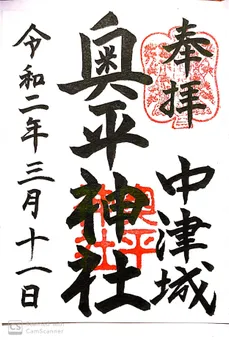 奉拝
中津城
奥平神社
奥平
神社
令和二年三月十一日
CS CamScanner